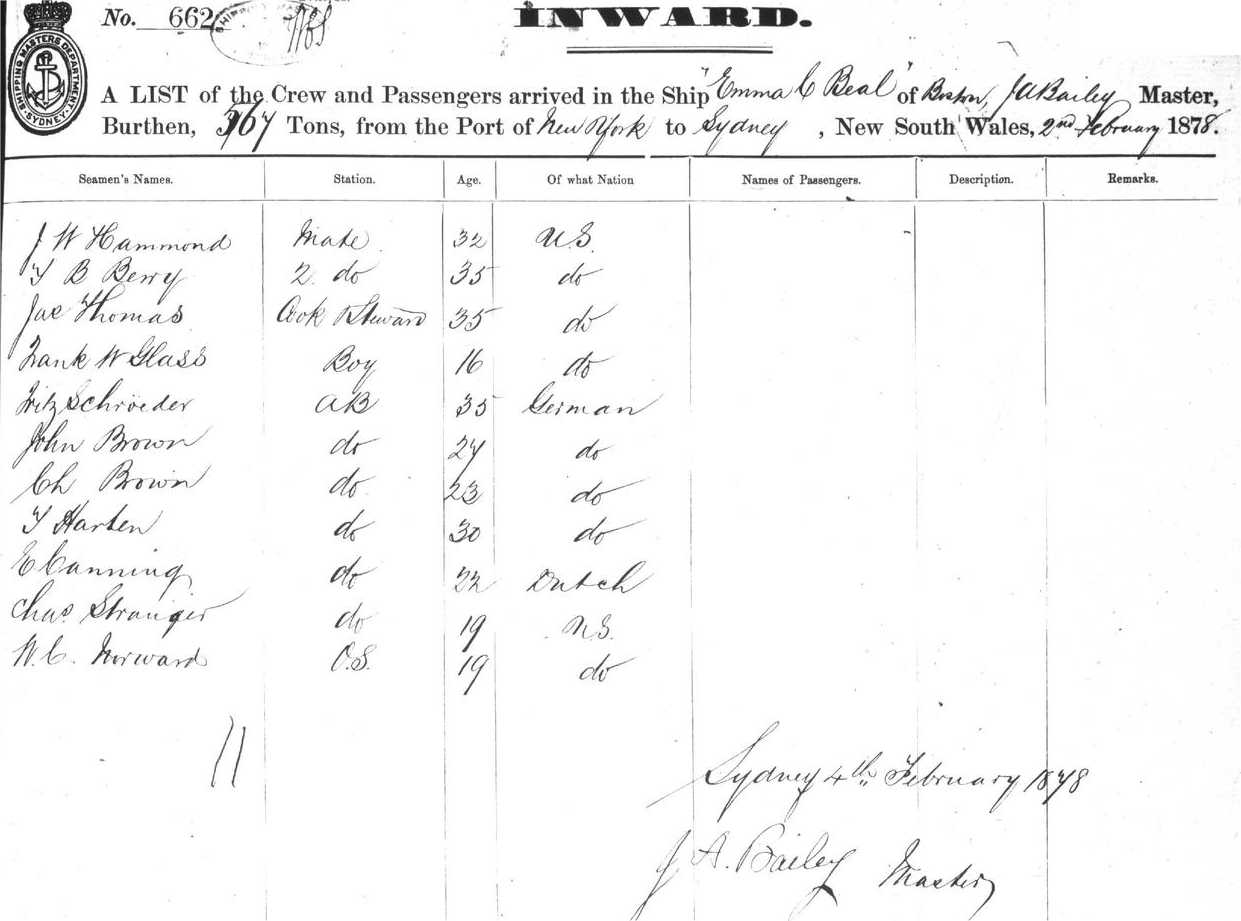 No. 662
INWARD.
SHIPPING MASTERS DEPARTMENT SYDNEY
A LIST of the Crew and Passengers arrived in the Ship "Emma C Beal" of Boston, JA Bailey Master,
Burthen, 567 Tons, from the Port of New York to Sydney, New South Wales, 2nd February 1878.
Seamen's Names. Station. Age. Of what Nation Names of Passengers. Description. Remarks.
J W Hammond Mate 32 U.S.
T B Berry 2 do 35 do
Jas Thomas Cook & Steward 35 do
Frank W Glass Boy 16 do
Fritz Schroeder AB 35 German
John Brown do 27 do
Ch Brown do 23 do
T Harten do 30 do
E Canning do 22 Dutch
Chas Stranger do 19 U.S.
W. C. Norward O.S. 19 do
11
Sydney 4th February 1878
J A. Bailey Master